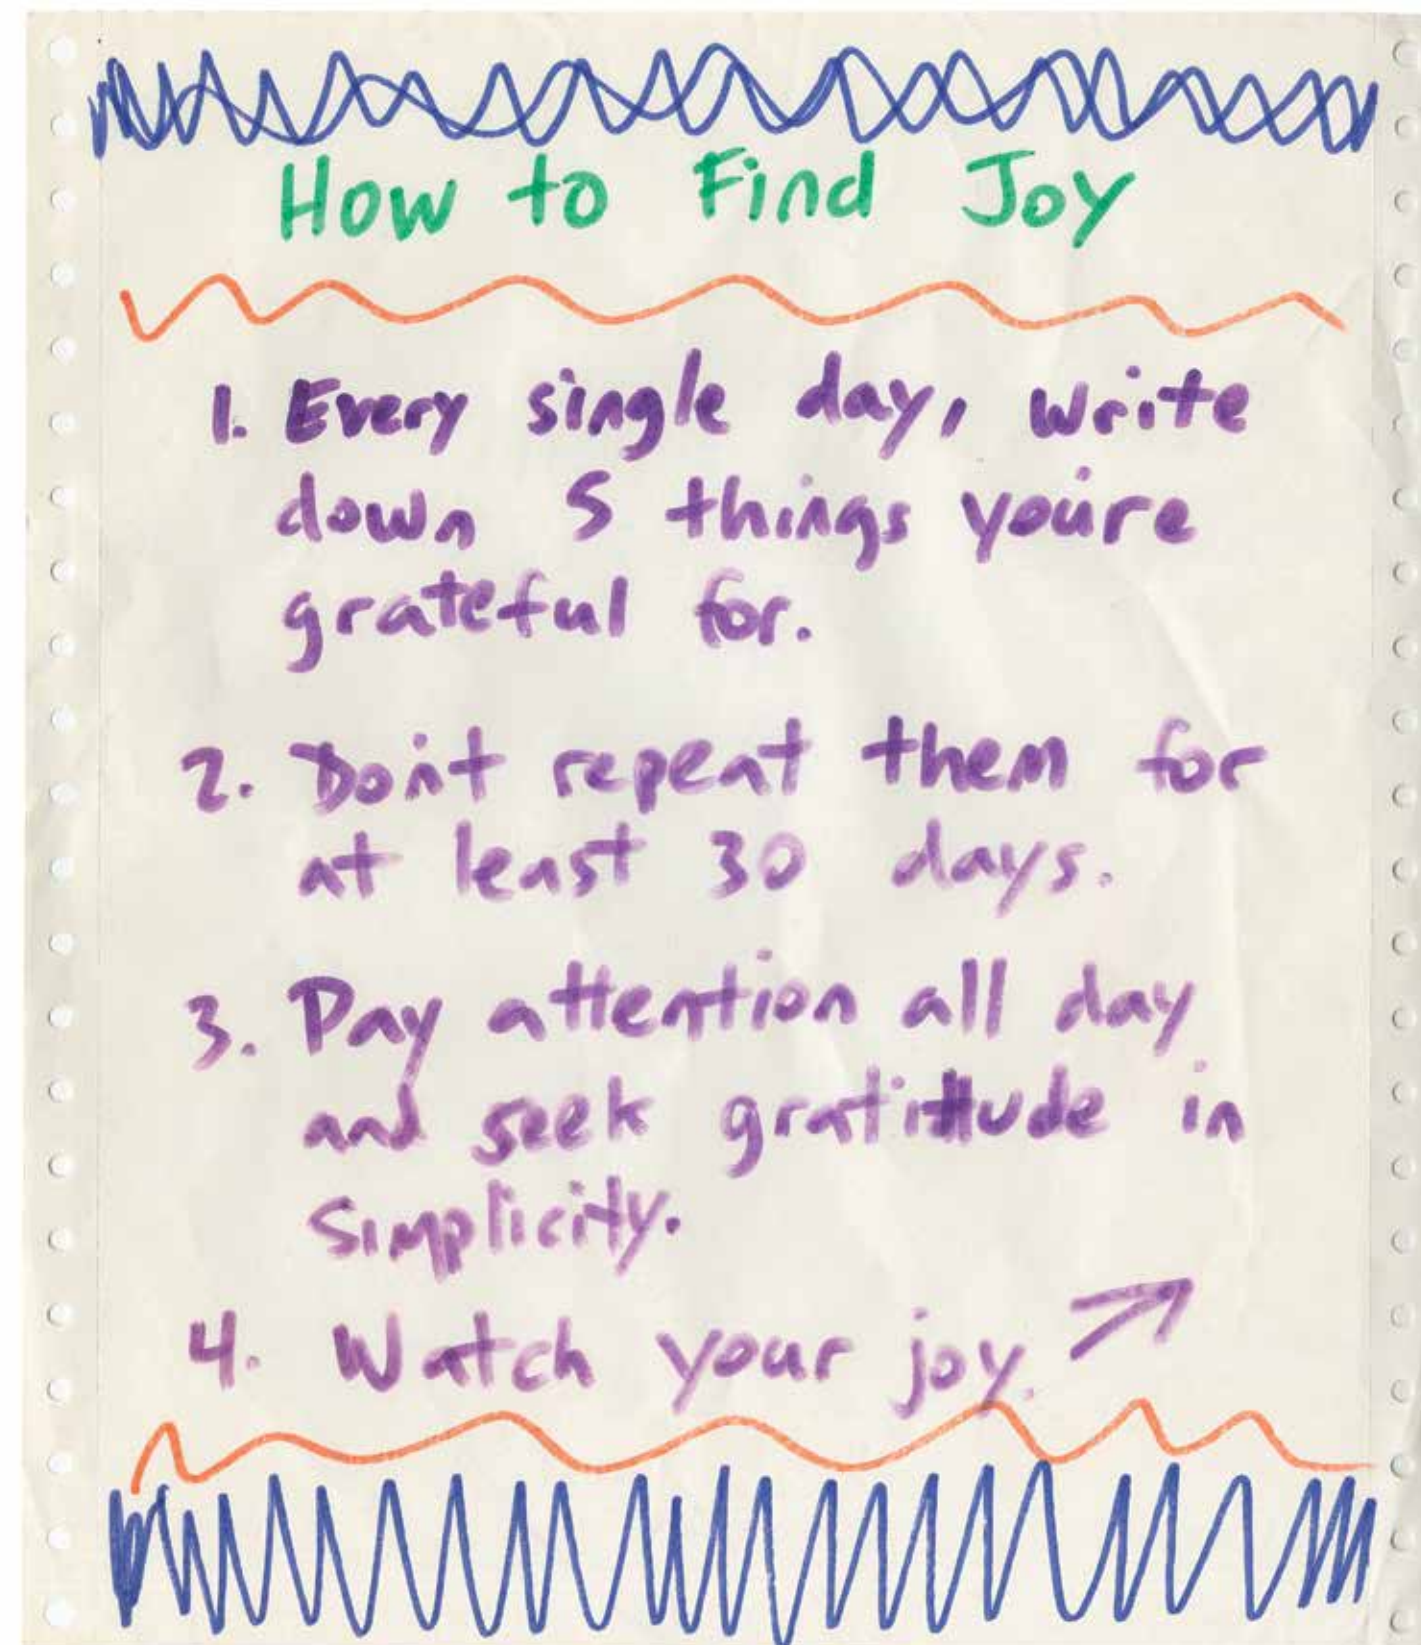 How to Find Joy
1. Every single day, write
down 5 things you're
grateful for.
2. Don't repeat them for
at least 30 days.
3. Pay attention all day
and seek gratitude in
simplicity.
4. Watch your joy. ↗